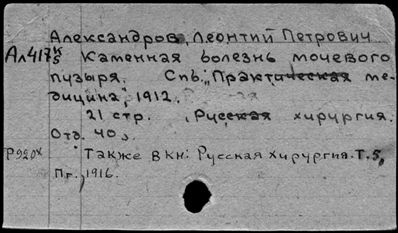 Александров, Леонтий Петрович
Ал417к/5 Каменная болезнь мочевого
пузыря. Спб., "Практическая ме-
дицина", 1912.
21 стр. (Русская хирургия.
Отд. 40).
P920x Также в кн: Русская хирургия. Т. 5,
Пг., 1916.